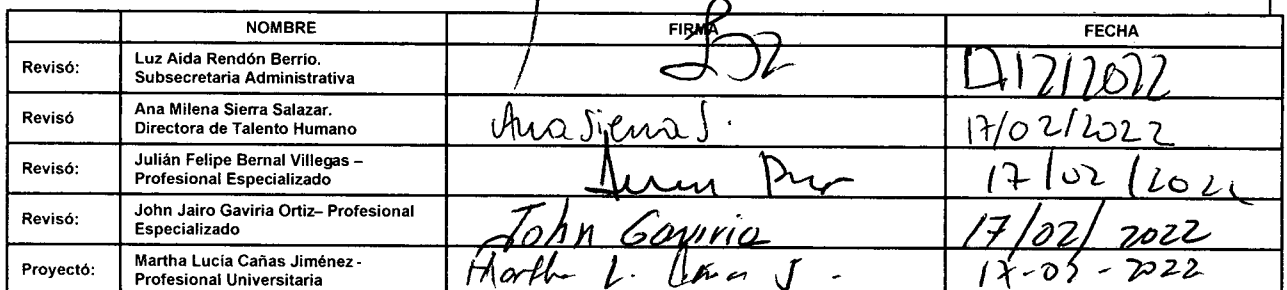 NOMBRE FIRMA FECHA
Revisó: Luz Aida Rendón Berrio.
Subsecretaria Administrativa
Revisó Ana Milena Sierra Salazar.
Directora de Talento Humano
Ana Sierra S. 17/02/2022
Revisó: Julián Felipe Bernal Villegas –
Profesional Especializado
17/02/2022
Revisó: John Jairo Gaviria Ortiz– Profesional
Especializado
John Gaviria 17/02/2022
Proyectó: Martha Lucía Cañas Jiménez -
Profesional Universitaria
Martha L. Cañas J.